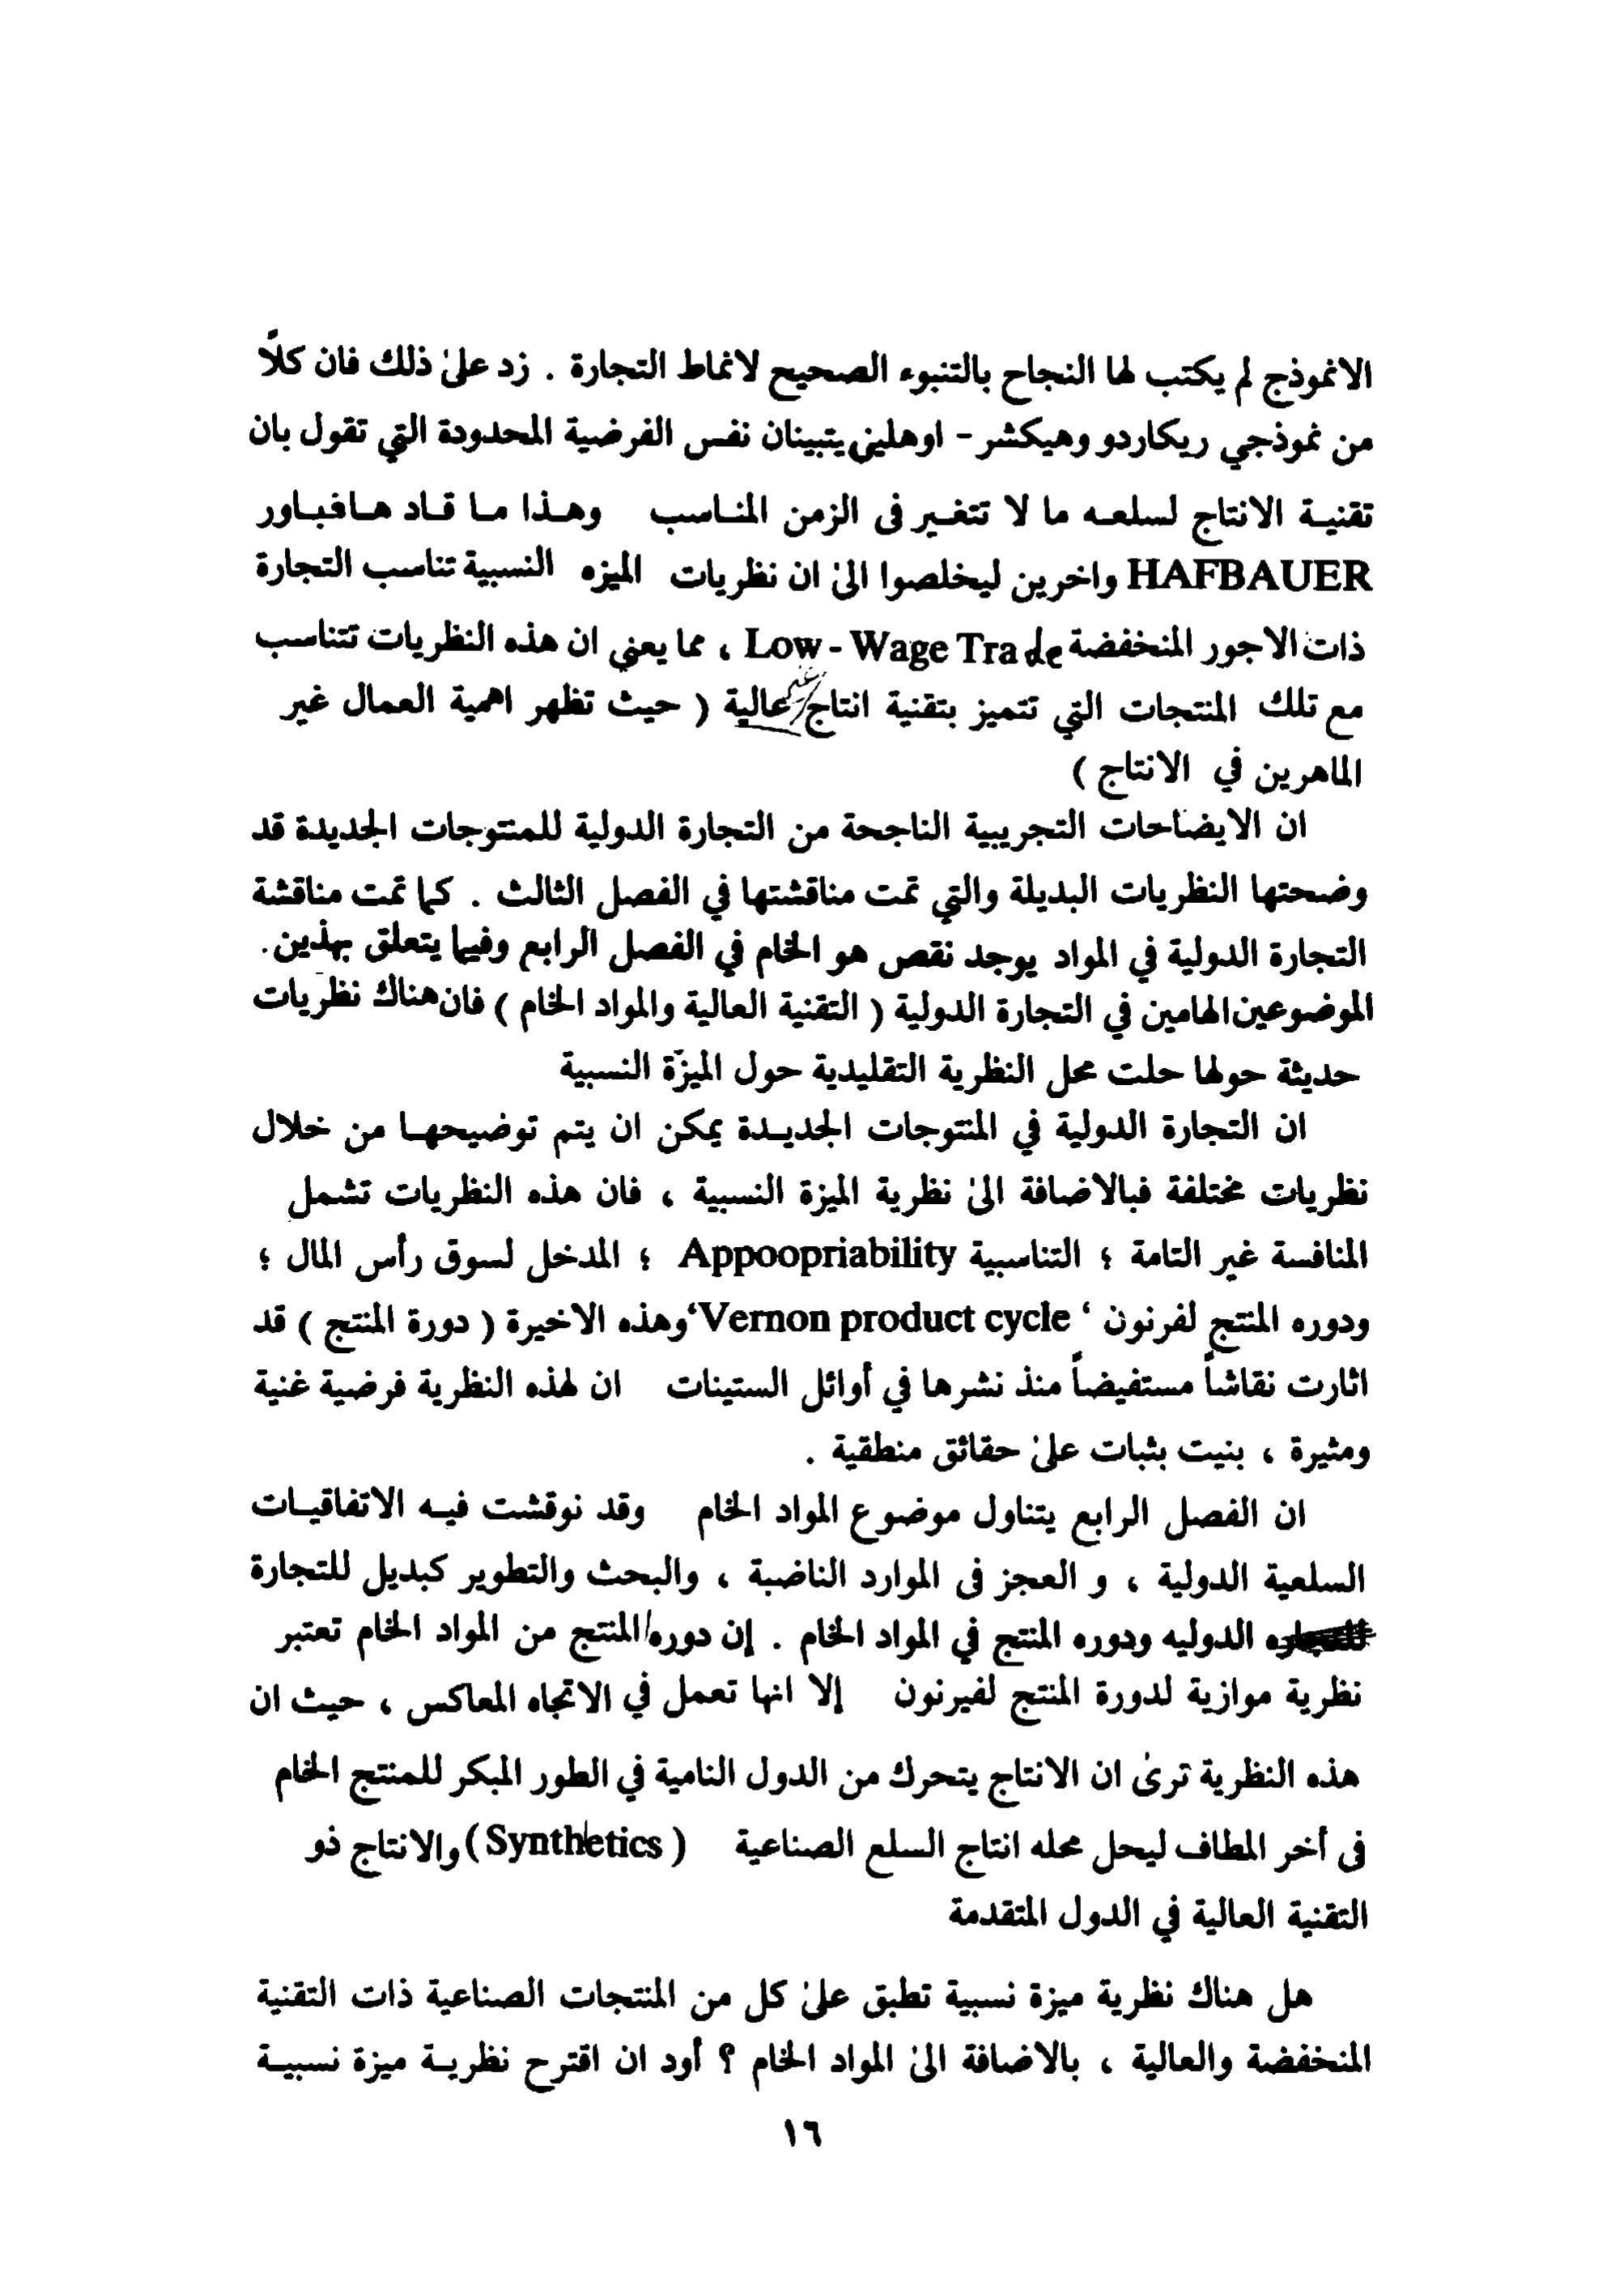 الانموذج لم يكتب لها النجاح بالتنبوء الصحيح لانماط التجارة . زد على ذلك فان كلاً
من نموذجي ريكاردو وهيكشر - اوهلين يتبينان نفس الفرضية المحدودة التي تقول بان
تقنية الانتاج لسلعه ما لا تتغير فى الزمن المناسب وهذا ما قاد هافباور
HAFBAUER واخرين ليخلصوا الى ان نظريات الميزه النسبية تناسب التجارة
ذات الاجور المنخفضة Low - Wage Trade ، مما يعني ان هذه النظريات تتناسب
مع تلك المنتجات التي تتميز بتقنية انتاج غير عالية ( حيث تظهر اهمية العمال غير
الماهرين في الانتاج )
ان الايضاحات التجريبية الناجحة من التجارة الدولية للمنتوجات الجديدة قد
وضحتها النظريات البديلة والتي تمت مناقشتها في الفصل الثالث . كما تمت مناقشة
التجارة الدولية في المواد يوجد نقص هو الخام في الفصل الرابع وفيما يتعلق بهذين .
الموضوعين الهامين في التجارة الدولية ( التقنية العالية والمواد الخام ) فان هناك نظريات
حديثة حولها حلت محل النظرية التقليدية حول الميزة النسبية
ان التجارة الدولية في المنتوجات الجديدة يمكن ان يتم توضيحها من خلال
نظريات مختلفة فبالاضافة الى نظرية الميزة النسبية ، فان هذه النظريات تشمل
المنافسة غير التامة ؛ التناسبية Appoopriability ؛ المدخل لسوق رأس المال ؛
ودوره المنتج لفرنون ‘ Vernon product cycle‘ وهذه الاخيرة ( دورة المنتج ) قد
اثارت نقاشاً مستفيضاً منذ نشرها في أوائل الستينات ان لهذه النظرية فرضية غنية
ومثيرة ، بنيت بثبات على حقائق منطقية .
ان الفصل الرابع يتناول موضوع المواد الخام وقد نوقشت فيه الاتفاقيات
السلعية الدولية ، و العجز فى الموارد الناضبة ، والبحث والتطوير كبديل للتجارة
الدوليه ودوره المنتج في المواد الخام . إن دوره المنتج من المواد الخام تعتبر
نظرية موازية لدورة المنتج لفيرنون إلا انها تعمل في الاتجاه المعاكس ، حيث ان
هذه النظرية ترى ان الانتاج يتحرك من الدول النامية في الطور المبكر للمنتج الخام
فى أخر المطاف ليحل محله انتاج السلع الصناعية ( Synthetics ) والانتاج ذو
التقنية العالية في الدول المتقدمة
هل هناك نظرية ميزة نسبية تطبق على كل من المنتجات الصناعية ذات التقنية
المنخفضة والعالية ، بالاضافة الى المواد الخام ؟ أود ان اقترح نظرية ميزة نسبية
١٦